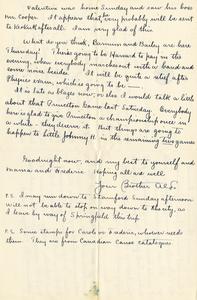 Valentine was home Sunday and saw his boss
Mr. Cooper. It appears that, very probably will be sent
to              after all. I am very glad of this.
What do you think, Barnum and Bailey are here
Thursday! Think going to be Howard to pay in the
evening, when everybody             with a band and
some more besides. It will be quite a relief after
Physics exam, which is going to be —
It is late as blazes now, or else I would talk a little
about that Princeton game last Saturday. Everybody
here is glad to give Princeton a championship once in
a while — they deserve it. But things are going to
happen to little Johnny H. in the remaining two games
Goodnight now, and my best to yourself and
Mama and Frederic. Hoping all are well
Your Brother A.S.
P.S. I may run down to Stamford Sunday afternoon
will not be able to stop on way down to the city, as
I leave by way of Springfield this trip
P.S. Some stamps for Carol or Frederic, whoever needs
them. They are from Canadian Cause catalogues